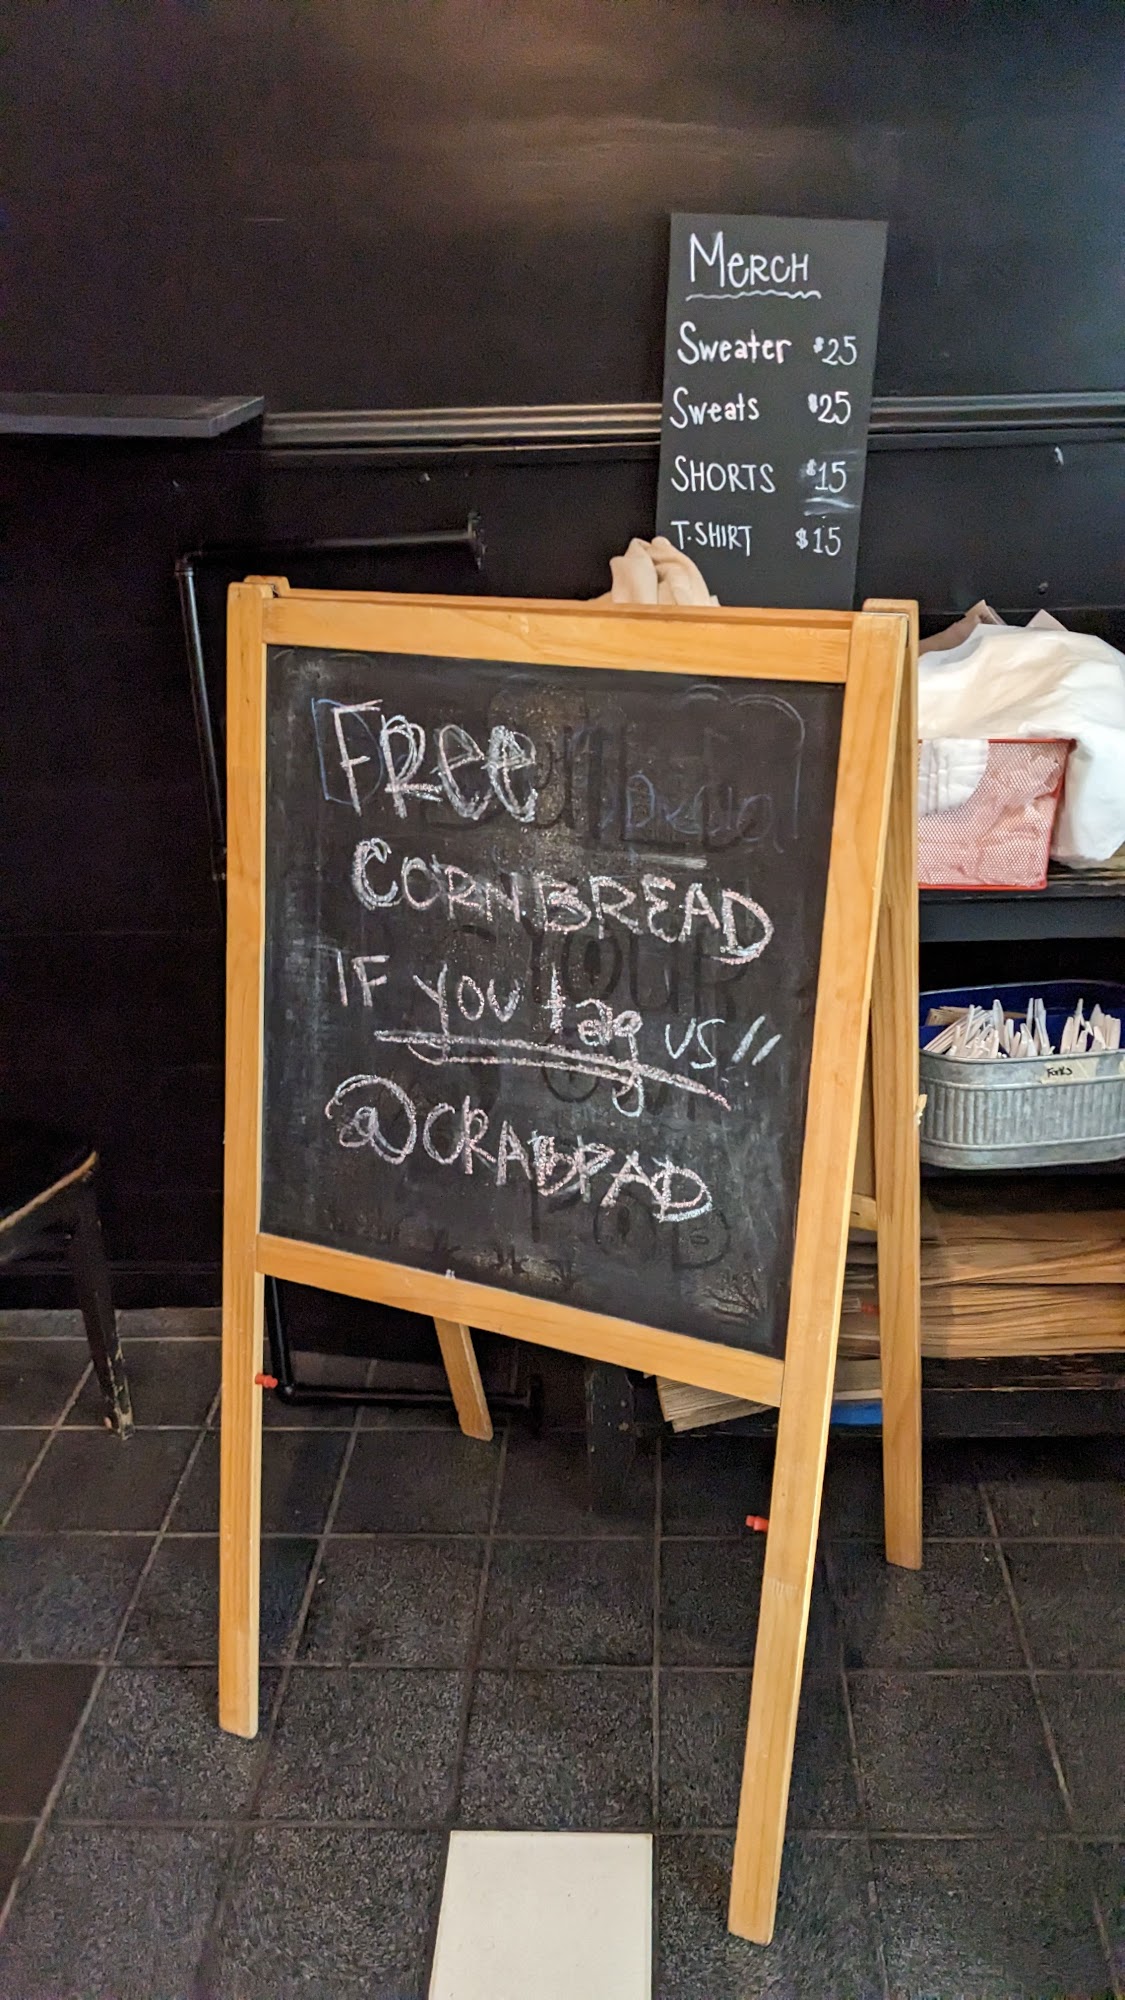 MeRCH
Sweater $25
Sweats $25
SHORTS $15
T-SHIRT $15
FRee
CORNBREAD
IF you tag us!!
@CRABPAD
Forks